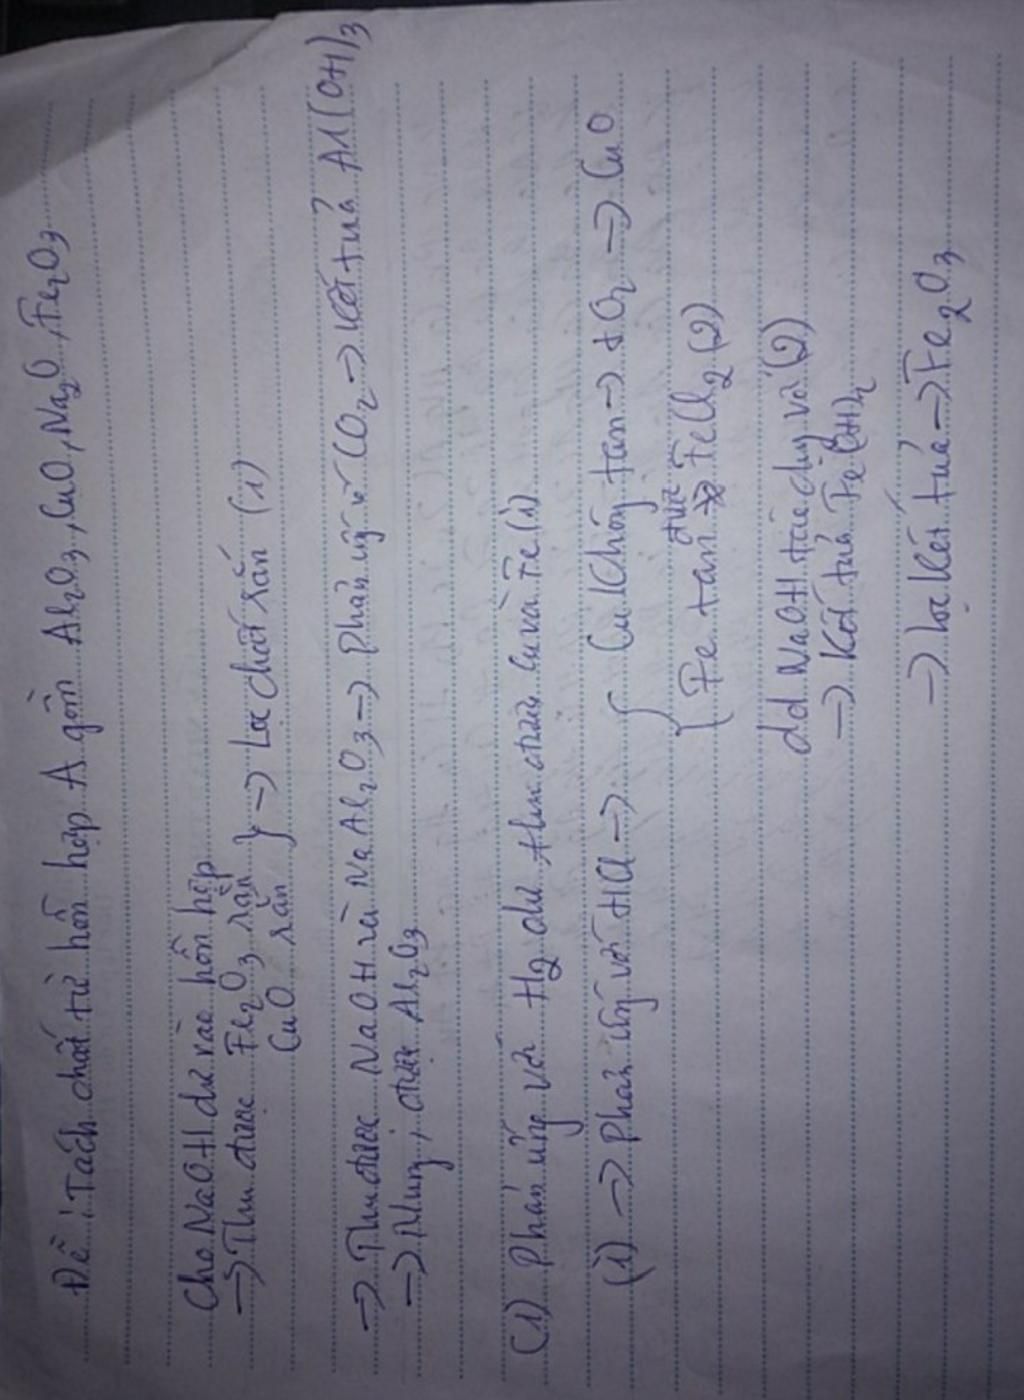 Đề: Tách chất từ hỗn hợp A gồm Al2O3, CuO, Na2O, Fe2O3
Cho NaOH dư vào hỗn hợp
→ Thu được Fe2O3 rắn
CuO rắn } → Lọc chất rắn (1)
→ Thu được NaOH và NaAl2O3 → Phản ứng vs CO2 → Kết tủa Al(OH)3
→ Nung, được Al2O3
(1) Phản ứng với H2 dư thu được Cu và Fe (i)
(i) → Phản ứng với HCl → { Cu không tan → + O2 → CuO
{ Fe tan được FeCl2 (2)
dd NaOH tác dụng với (2)
→ Kết tủa Fe(OH)2
→ Lọc kết tủa → Fe2O3